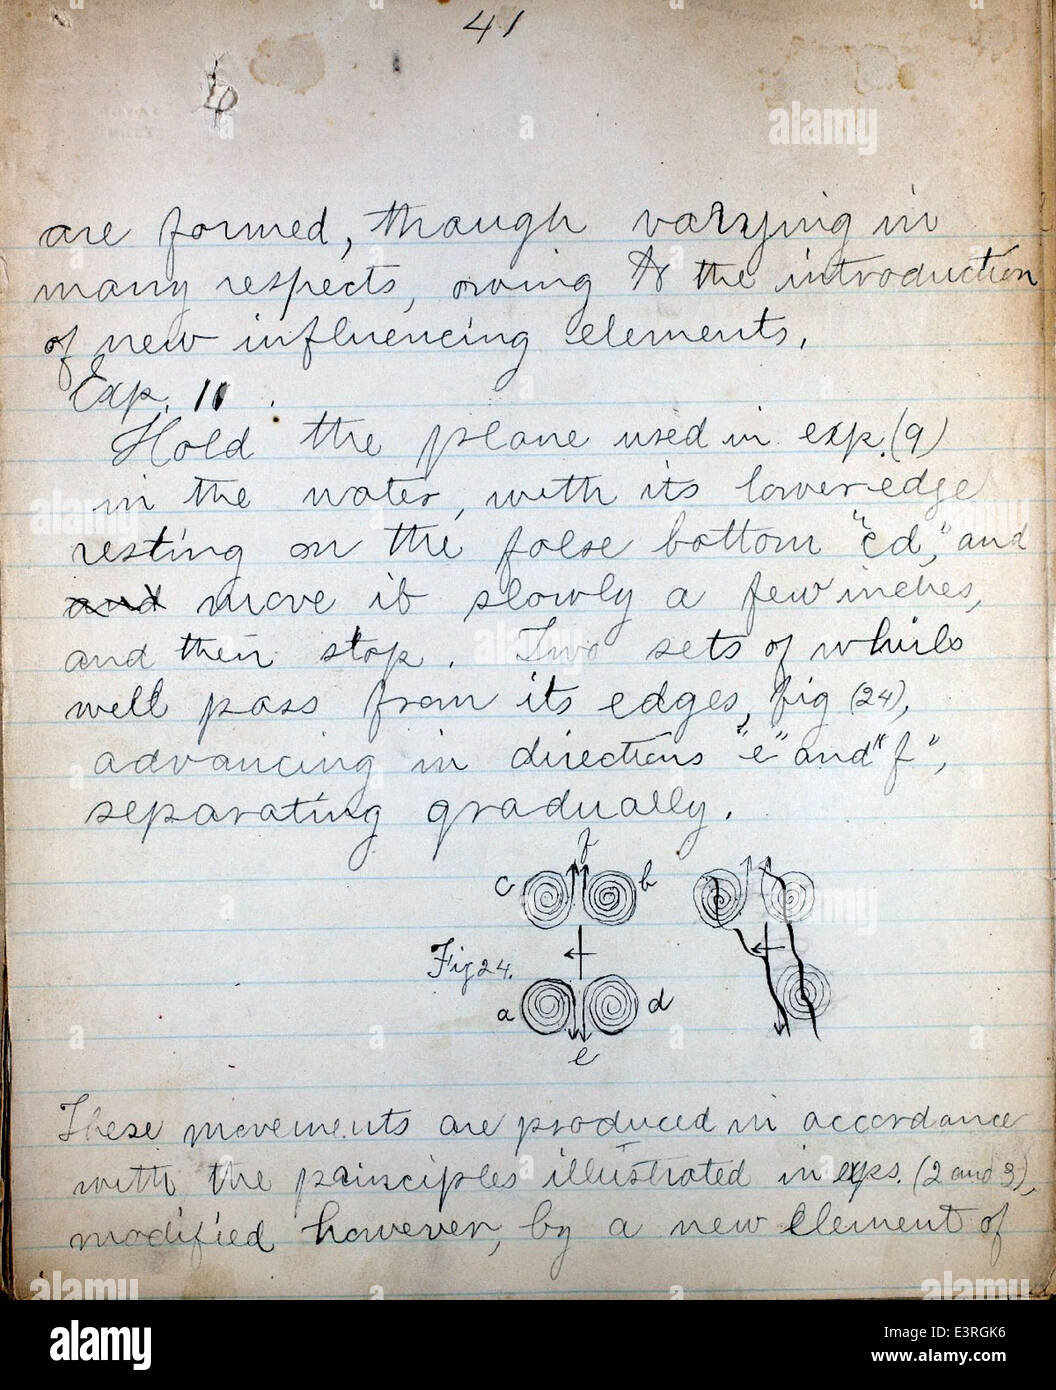 41
are formed, though varying in
many respects, owing to the introduction
of new influencing elements.
Exp. 11.
Hold the plane used in exp. (9)
in the water, with its lower edge
resting on the false bottom "cd", and
and move it slowly a few inches,
and then stop. Two sets of whirls
will pass from its edges, fig (24),
advancing in directions "e" and "f",
separating gradually.
f
c b
Fig 24.
a d
e
These movements are produced in accordance
with the principles illustrated in exps. (2 and 3),
modified however, by a new element of
alamy
Image ID: E3RGK6
www.alamy.com